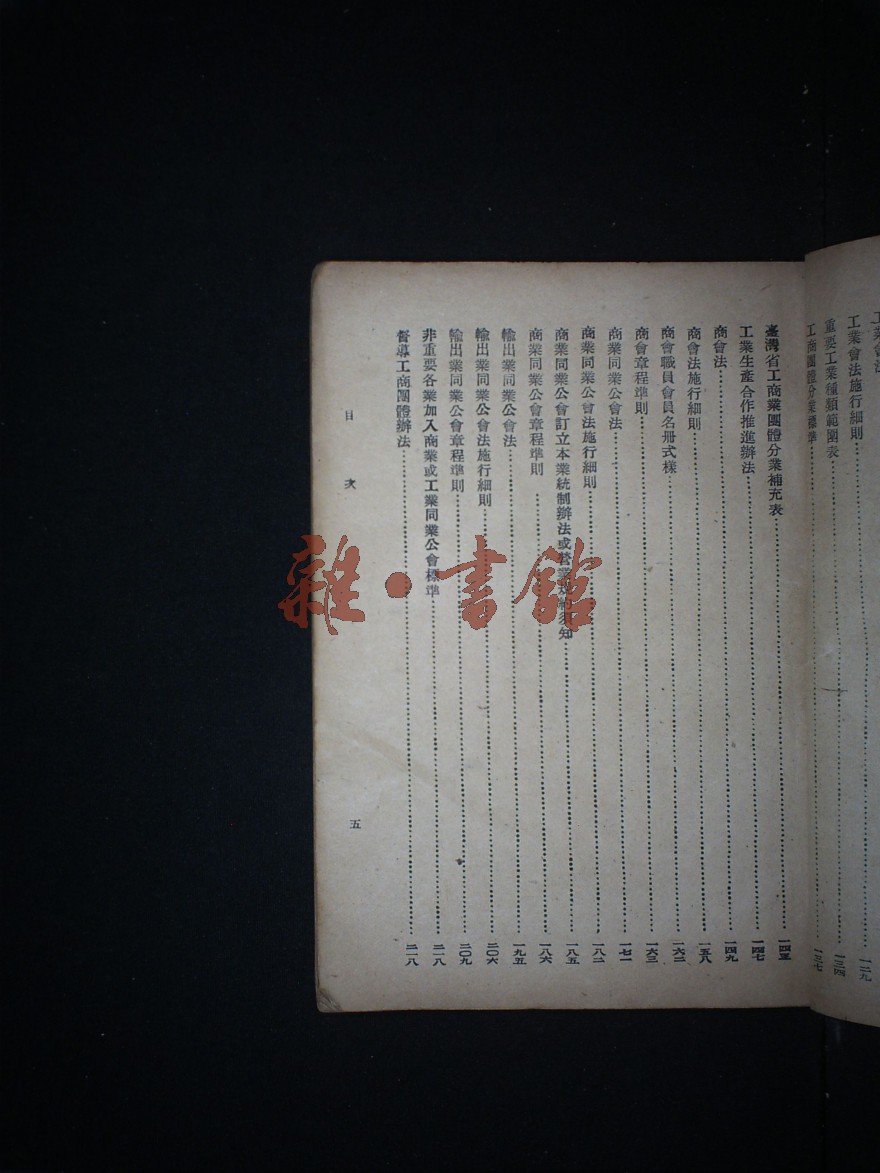 工業會法
工業會法施行細則……一二九
重要工業種類範圍表……一三四
工商團體分業標準……一三七
臺灣省工商業團體分業補充表……一四五
工業生產合作推進辦法……一四七
商會法……一四九
商會法施行細則……一五八
商會職員會員名册式樣……一六二
商會章程準則……一六三
商業同業公會法……一七一
商業同業公會法施行細則……一八二
商業同業公會訂立本業統制辦法或營業規約須知……一八五
商業同業公會章程準則……一八六
輸出業同業公會法……一九五
輸出業同業公會法施行細則……二〇六
輸出業同業公會章程準則……二〇九
非重要各業加入商業或工業同業公會標準……二一八
督導工商團體辦法……二一八
目次
五
雜·書館